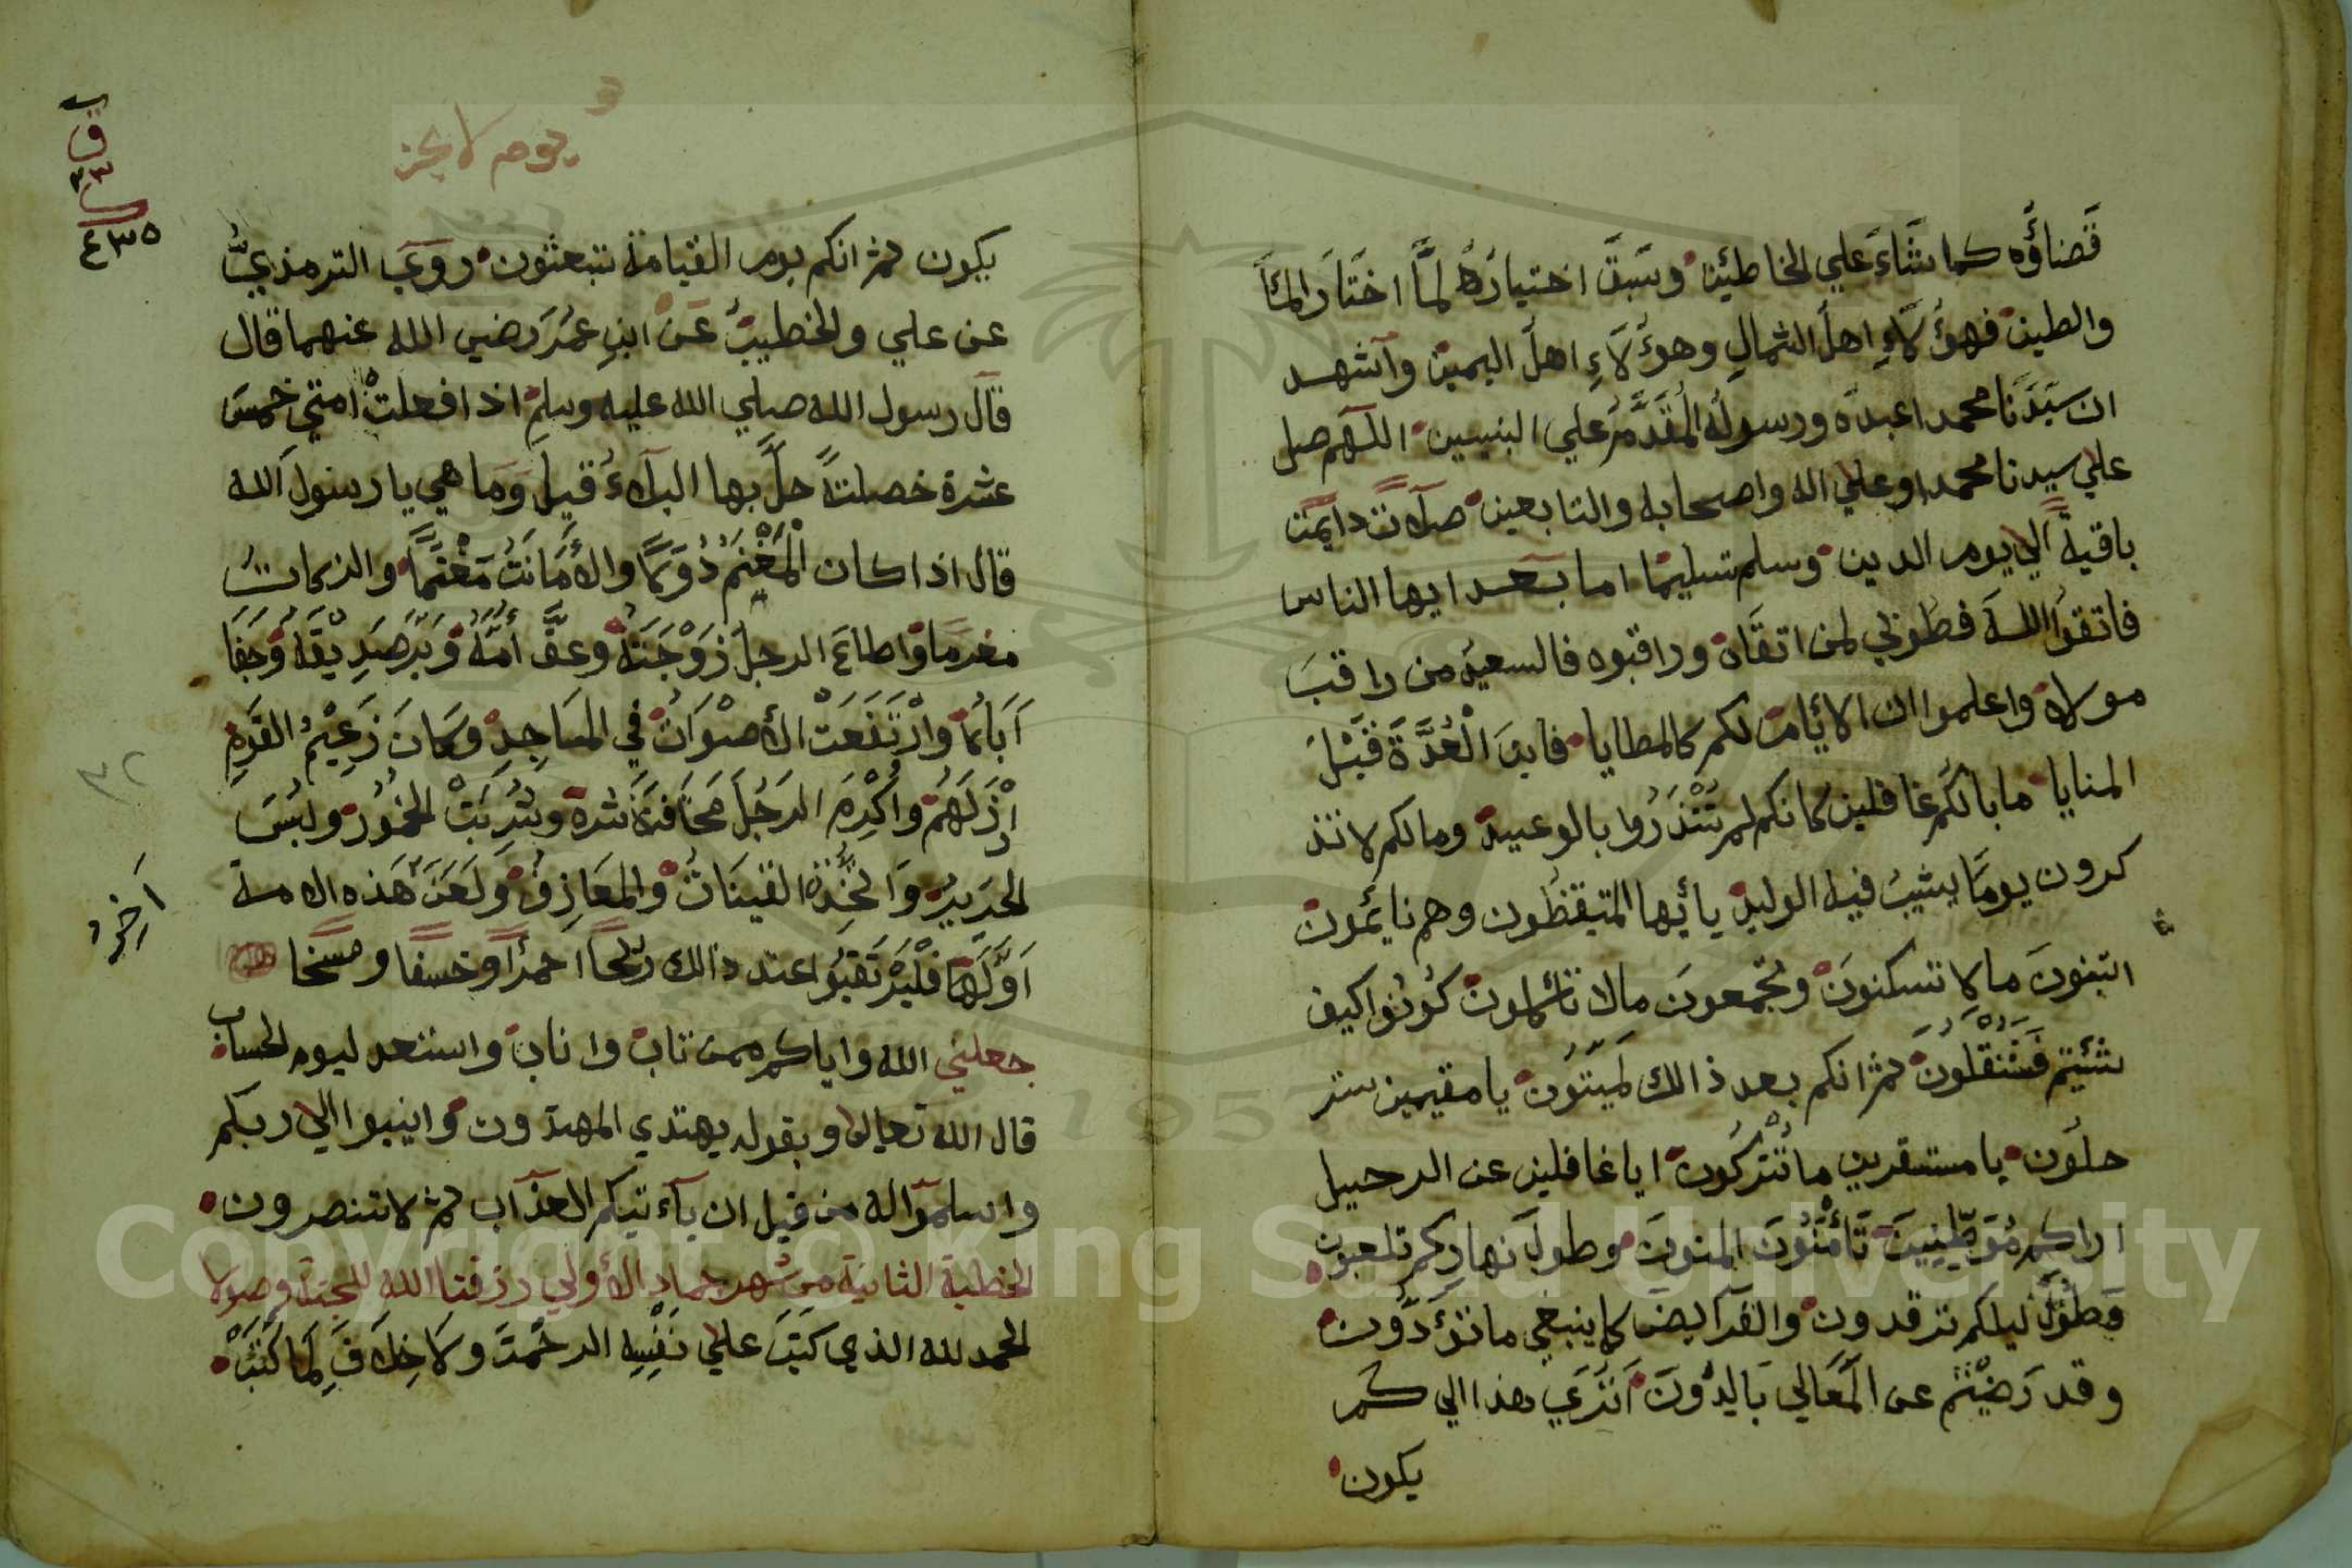 قَضاؤُه كما شَاءَ علي الخاطئين وسَبَقَ اختيارُهُ لمَّا اختَارَ المَاَ
والطين فهؤُلَآءِ اهلَ الشمالِ وهؤُلَآءِ اهلَ اليمين وآشهد
ان سَيّدَنَا محمدا عبده ورسولُه المُقَدَّمُ علي النبيين اللهم صل
علي سيدنا محمد وعلي اله واصحابه والتابعين صلاتً دايمتً
باقيةً الي يوم الدين وسلم تسليمًا اما بعد ايها الناس
فاتقوُا اللهَ فطُوبي لمن اتقَاه وراقبوه فالسعيد من راقبَ
مولاه واعلموا ان الايَّام لكم كالمطايا فاينَ الْعُدَّةَ قَبْلَ
المنايا مابالكُم غافلين كانكم لم تُنْذَرُوا بالوعيد ومالكم لا تذ
كرون يومًا يشيبُ فيه الوليد يا أيها المتيقظُون وهم نايمُون
اتبنونَ مالا تسكنونَ وتجمعونَ مالا تأكلون كُونُوا كيف
شئيتم فَسَتُنْقَلُونَ ثم انكم بعد ذالك لَمَيّتُون يا مقيمين ستر
حلُون يا مستقرين ما تُتْرَكُون ايا غافلين عن الرحيل
اراكم مُوَطِّنِينَ تَأْمَنُونَ المنون وطولَ نهارِكم تلعبون
وَطُوْلَ ليلكم ترقدون والفرآيض كما ينبغي ما تؤَدُّون
وقد رَضِيْتم عن المَعَالي بَالدُّونَ اتَرَي هذا الي كم
يكون
و
يوم لا يجز
يكون ثم انكم يوم القيامة تبعثون رَوَيَ الترمذيُّ
عن علي والخطيبُ عَن ابنِ عُمَرَ رضي الله عنهما قال
قال رسول الله صلي الله عليه وسلم اذا فعلتْ امتي خمسَ
عشرة خصلتًا حلَّ بها البلاءُ قيل وَما هي يا رسولَ الله
قال اذا كان الْمَغْنَمُ دُوَلًا والأَمَانَتُ مَغْنَمًا والزكاتُ
مغرمًا واطاعَ الرجلُ زَوْجَتَهُ وعقَّ أُمَّهُ وَبَرَّ صَدِيْقَهُ وَجَفَا
آبَاهُ وارْتَفَعَتْ الأَصْوَاتُ في المسَاجِدِ وَكانَ زَعِيْمُ القَوم
اَرْذَلَهُمْ واُكْرِمَ الرَجُلَ مَخافَةَ شره وشُرِبَتْ الخمُورُ ولُبِسَ
الحَرِيرُ وَاتُّخِذَة القينَاتُ والمعَازِفُ وَلَعَنَ هذه الامة
اوَّلَهَا فلْيَرْتَقِبُوا عند ذالك ريحًا احمرًا وخسفًا ومسخا
جعلني الله واياكم ممن تاب واناب واستعد ليوم الحساب
قال الله تعالي وبقوله يهتدي المهتدون وانيبوا الي ربكم
واسلموا له من قبل ان يآءتيكم العذاب ثم لا تنصرون
الخطبة الثانية من شهر جماد الأولي رزقنا الله الجنة وصولا
الحمد لله الذي كَتَبَ علي نَفْسِه الرحمَتَ ولا خِلَافَ لِمَا كَتَبَ
اَخِرُ
٤٣٥